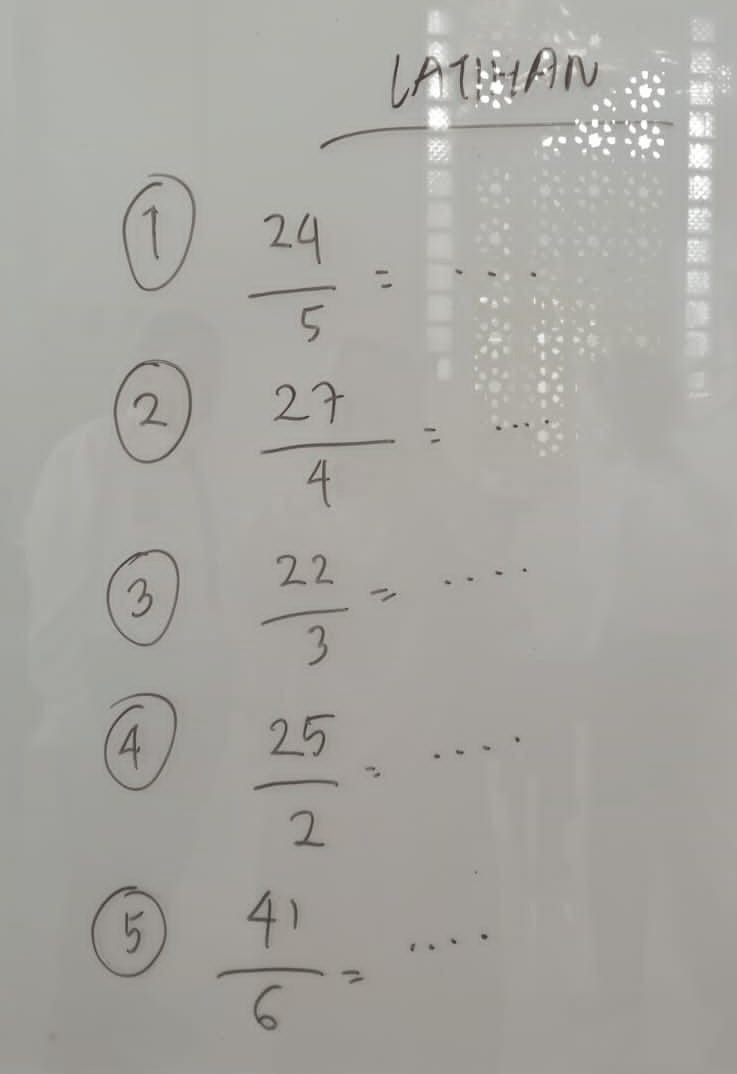 LATIHAN
1 24/5 = ....
2 27/4 = ....
3 22/3 = ....
4 25/2 = ....
5 41/6 = ....